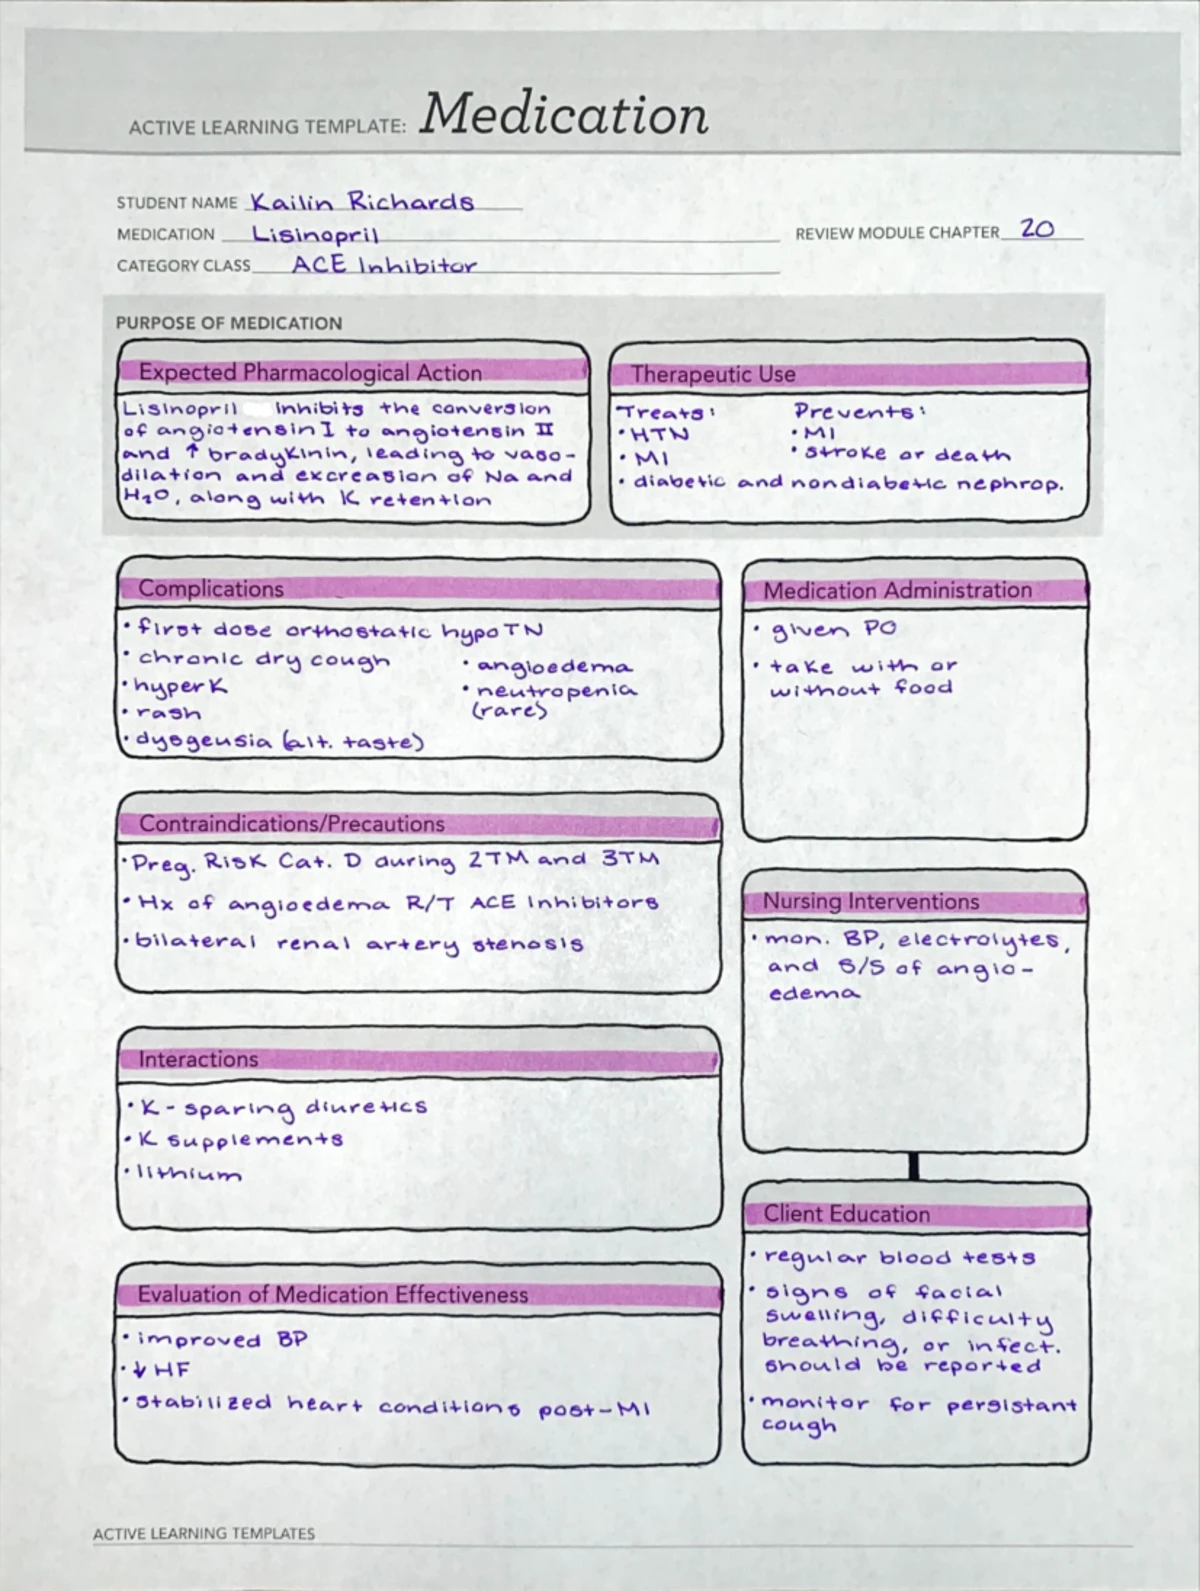 ACTIVE LEARNING TEMPLATE: Medication
STUDENT NAME Kailin Richards
MEDICATION Lisinopril
REVIEW MODULE CHAPTER 20
CATEGORY CLASS ACE Inhibitor
PURPOSE OF MEDICATION
Expected Pharmacological Action
Lisinopril inhibits the conversion
of angiotensin I to angiotensin II
and ↑ bradykinin, leading to vaso-
dilation and excreasion of Na and
H₂O, along with K retention
Therapeutic Use
Treats: Prevents:
• HTN • MI
• MI • stroke or death
• diabetic and nondiabetic nephrop.
Complications
• first dose orthostatic hypoTN
• chronic dry cough • angioedema
• hyperK • neutropenia
• rash (rare)
• dysgeusia (alt. taste)
Medication Administration
• given PO
• take with or
without food
Contraindications/Precautions
• Preg. Risk Cat. D during 2TM and 3TM
• Hx of angioedema R/T ACE Inhibitors
• bilateral renal artery stenosis
Nursing Interventions
• mon. BP, electrolytes,
and S/S of angio-
edema
Interactions
• K-sparing diuretics
• K supplements
• lithium
Client Education
• regular blood tests
• signs of facial
swelling, difficulty
breathing, or infect.
should be reported
• monitor for persistant
cough
Evaluation of Medication Effectiveness
• improved BP
• ↓ HF
• stabilized heart conditions post-MI
ACTIVE LEARNING TEMPLATES